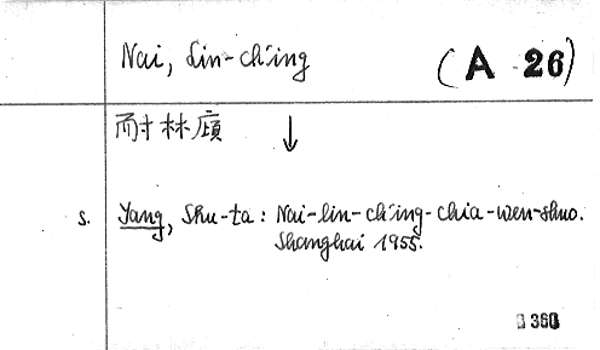 Nai, Lin-ch'ing (A 26)
耐林廎 ↓
s. Yang, Shu-ta: Nai-lin-ch'ing-chia-wen-shuo.
Shanghai 1955.
360